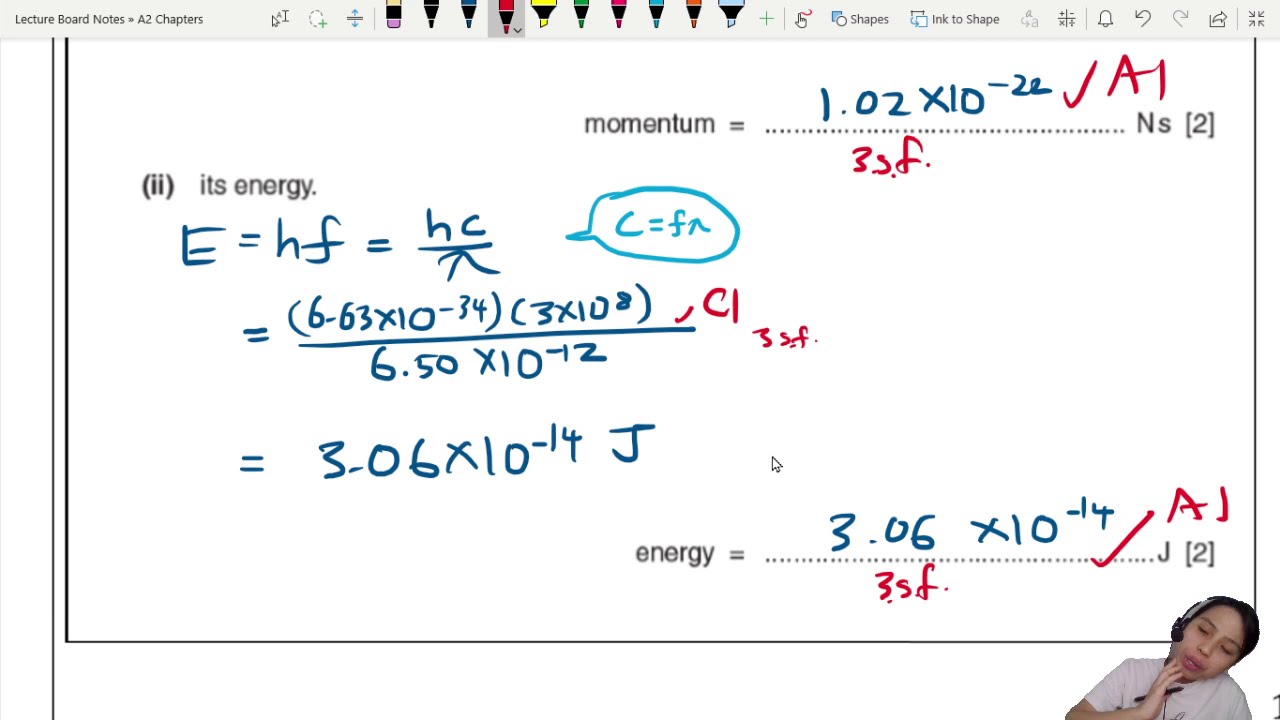 Lecture Board Notes » A2 Chapters
Shapes
Ink to Shape
momentum = 1.02 ×10⁻²² ✓ A1 Ns [2]
3 s.f.
(ii) its energy.
E = hf = hc/λ
C = fλ
= (6.63×10⁻³⁴)(3×10⁸) , C1
6.50 ×10⁻¹²
3 s.f.
= 3.06×10⁻¹⁴ J
energy = 3.06 ×10⁻¹⁴ ✓ A1 J [2]
3 s.f.